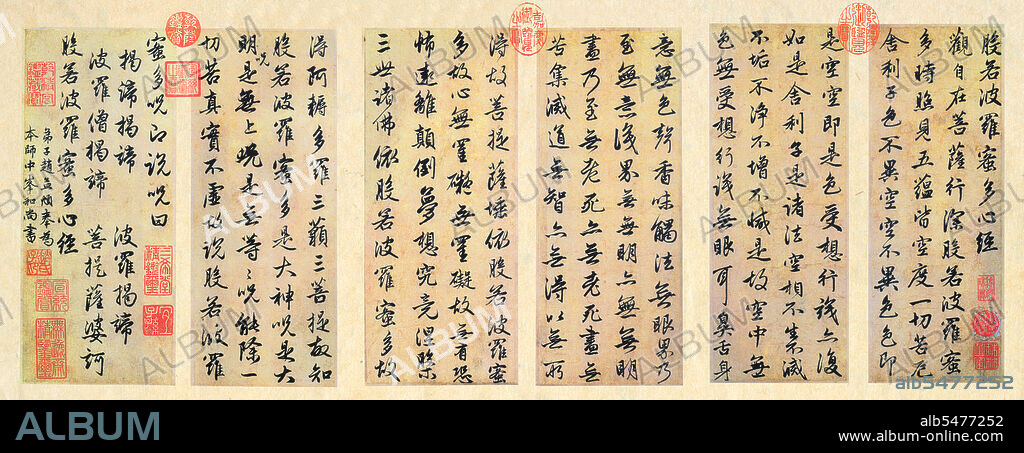 般若波羅蜜多心經
觀自在菩薩行深般若波羅蜜
多時照見五蘊皆空度一切苦厄
舍利子色不異空空不異色色即
是空空即是色受想行識亦復
如是舍利子是諸法空相不生不滅
不垢不淨不增不減是故空中無
色無受想行識無眼耳鼻舌身
意無色聲香味觸法無眼界乃
至無意識界無無明亦無無明
盡乃至無老死亦無老死盡無
苦集滅道無智亦無得以無所
得故菩提薩埵依般若波羅蜜
多故心無罣礙無罣礙故無有恐
怖遠離顛倒夢想究竟涅槃
三世諸佛依般若波羅蜜多故
得阿耨多羅三藐三菩提故知
般若波羅蜜多是大神呪是大
明呪是無上呪是無等〻呪能除一
切苦真實不虛故說般若波羅
蜜多呪即說呪曰
揭諦揭諦 波羅揭諦
波羅僧揭諦 菩提薩婆訶
般若波羅蜜多心經
弟子趙孟頫奉為
本師中峯和尚書
alb5477252
ALBUM
alb5477252
www.album-online.com